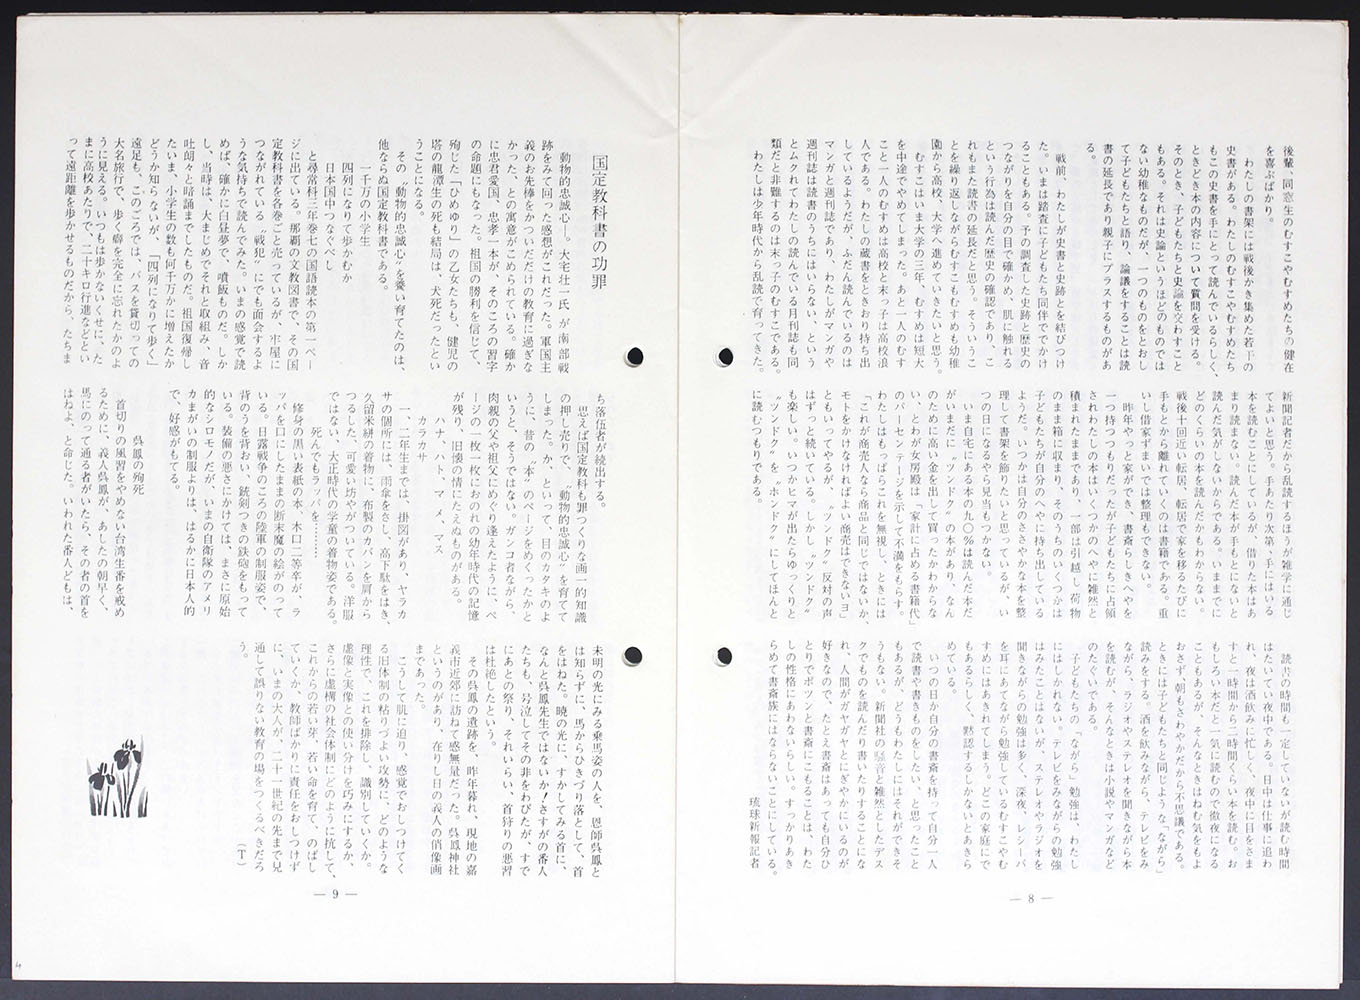 後輩、同窓生のむすこやむすめたちの健在
を喜ぶばかり。
わたしの書架には戦後かき集めた若干の
史書がある。わたしのむすこやむすめたち
もこの史書を手にとって読んでいるらしく、
ときどき本の内容について質問を受ける。
そのとき、子どもたちと史論を交わすこと
もある。それは史論というほどのものでは
ない幼稚なものだが、一つのものをとおし
て子どもたちと語り、論議をすることは読
書の延長であり親子にプラスするものがあ
る。
戦前、わたしが史書と史跡とを結びつけ
た。いまは踏査に子どもたち同伴ででかけ
ることもある。予の調査した史跡と歴史の
つながりを自分の目で確かめ、肌に触れる
という行為は読んだ歴史の確認であり、こ
れもまた読書の延長だと思う。そういうこ
とを繰り返しながらむすこもむすめも幼稚
園から高校、大学へ進めていきたいと思う。
むすこはいま大学の三年、むすめは短大
を中途でやめてしまった。あと一人のむす
こと一人のむすめは高校と末っ子は高校浪
人である。わたしの蔵書をときおり持ち出
しているようだが、ふだん読んでいるのは
マンガと週刊誌であり、わたしがマンガや
週刊誌は読書のうちにはいらない、という
とムクれてわたしの読んでいる月刊誌も同
類だと非難するのは末っ子のむすこである。
わたしは少年時代から乱読で育ってきた。
新聞記者だから乱読するほうが雑学に通じ
てよいと思う。手あたり次第、手にはいる
本を読むことにしているが、借りた本はあ
まり読まない。読んだ本が手もとにないと
読んだ気がしないからである。いままでに
どのくらいの本を読んだかもわからない。
戦後十回近い転居、転居で家を移るたびに
手もとから離れていくのは書籍である。重
いし借家ずまいでは整理もできない。
昨年やっと家ができ、書斎らしきへやを
一つ持つつもりだったが子どもたちに占領
されわたしの本はいくつかのへやに雑然と
積まれたままであり、一部は引越し荷物
のまま箱に収まり、そのうちのいくつかは
子どもたちが自分のへやに持ち出している
ようだ。いつかは自分のささやかな本を整
理して書架を飾りたいと思っているが、い
つの日になるやら見当もつかない。
いま自宅にある本の九〇％は読んだ本だ
がいまだに〝ツンドク〟の本があり、なん
のために高い金を出して買ったかわからな
い、とわが女房殿は「家計に占める書籍代」
のパーセンテージを示して不満をもらす。
わたしはもっぱらこれを無視し、ときには
「これが商売人なら商品と同じではないか、
モトをかけなければよい商売はできないヨ」
ともいってやるが、〝ツンドク〟反対の声
はずっと続いている。しかし〝ツンドク〟
も楽しい。いつかヒマが出たらゆっくりと
〝ツンドク〟を〝ホンドク〟にしてほんと
に読むつもりである。
読書の時間も一定していないが読む時間
はたいてい夜中である。日中は仕事に追わ
れ、夜は酒飲みに忙しく、夜中に目をさま
すと一時間から二時間くらい本を読む。お
もしろい本だと一気に読むので徹夜になる
こともあるが、そんなときはねむ気をもよ
おさず、朝もさわやかだから不思議である。
ときには子どもたちと同じような「ながら」
読みをする。酒を飲みながら、テレビをみ
ながら、ラジオやステレオを聞きながら本
を読むが、そんなときは小説やマンガなど
のたぐいである。
子どもたちの「ながら」勉強は、わたし
にはしかれない。テレビをみながらの勉強
はみたことはないが、ステレオやラジオを
聞きながらの勉強は多く、深夜、レシーバ
を耳にあてながら勉強しているむすこやむ
すめにはあきれてしまう。どこの家庭にで
もあるらしく、黙認するしかないとあきら
めている。
いつの日か自分の書斎を持って自分一人
で読書や書きものをしたい、と思ったこと
もあるが、どうもわたしにはそれができそ
うもない。新聞社の騒音と雑然としたデス
クでものを読んだり書いたりすることにな
れ、人間がガヤガヤとにぎやかにいるのが
好きなので、たとえ書斎はあっても自分ひ
とりでポツンと書斎にこもることは、わた
しの性格にあわないらしい。すっかりあき
らめて書斎族にはならないことにしている。
琉球新報記者
— 8 —
国定教科書の功罪
動物的忠誠心―。大宅壮一氏が南部戦
跡をみて回った感想がこれだった。軍国主
義のお先棒をかついだだけの教育に過ぎな
かった、との寓意がこめられている。確か
に忠君愛国、忠孝一本が、そのころの習字
の命題にもなった。祖国の勝利を信じて、
殉じた「ひめゆり」の乙女たちも、健児の
塔の龍潭生の死も結局は、犬死だったとい
うことになる。
その〝動物的忠誠心〟を養い育てたのは、
他ならぬ国定教科書である。
一千万の小学生
四列になりて歩かむか
日本国中つなぐべし
と尋常科三年巻七の国語読本の第一ペー
ジに出ている。那覇の文教図書で、その国
定教科書を各巻ごと売っているが、牢屋に
つながれている〝戦犯〟にでも面会するよ
うな気持ちで読んでみた。いまの感覚で読
めば、確かに白昼夢で、噴飯ものだ。しか
し、当時は、大まじめでそれと取組み、音
吐朗々と暗誦までしたものだ。祖国復帰し
たいま、小学生の数も何千万かに増えたか
どうか知らないが、「四列になりて歩く」
遠足も、このごろでは、バスを貸切っての
大名旅行で、歩く癖を完全に忘れたかのよ
うに見える。いつもは歩かないくせに、た
まに高校あたりで、二十キロ行進などとい
って遠距離を歩かせるものだから、たちま
ち落伍者が続出する。
思えば国定教科も罪つくりな画一的知識
の押し売りで、〝動物的忠誠心〟を育てて
しまった。か、といって、目のカタキのよ
うに、昔の〝本〟のページをめくったかと
いうと、そうではない。ガンコ者ながら、
肉親の父や祖父にめぐり逢えたように、ペ
ージの一枚一枚におのれの幼年時代の記憶
が残り、旧懐の情にたえぬものがある。
ハナ、ハト、マメ、マス
カラカサ
一、二年生までは、掛図があり、ヤラカ
サの個所には、雨傘をさし、高下駄をはき、
久留米絣の着物に、布製のカバンを肩から
つるした、可愛い坊やがついている。洋服
ではない、大正時代の学童の着物姿である。
死んでもラッパを…………
修身の黒い表紙の本、木口二等卒が、ラ
ッパを口にしたままの断末魔の絵がのって
いる。日露戦争のころの陸軍の制服姿で、
背のうを背おい、銃剣つきの鉄砲をもって
いる。装備の悪さにかけては、まさに原始
的なシロモノだが、いまの自衛隊のアメリ
カまがいの制服よりは、はるかに日本人的
で、好感がもてる。
呉鳳の殉死
首切りの風習をやめない台湾生番を戒め
るために、義人呉鳳が、あしたの朝早く、
馬にのって通る者がいたら、その者の首を
はねよ、と命じた。いわれた番人どもは、
未明の光にみる乗馬姿の人を、恩師呉鳳と
は知らずに、馬からひきづり落として、首
をはねた。暁の光に、すかしてみる首に、
なんと呉鳳先生ではないか！さすがの番人
たちも、号泣してその非をわびたが、すで
にあとの祭り、それいらい、首狩りの悪習
は杜絶したという。
その呉鳳の遺跡を、昨年暮れ、現地の嘉
義市近郊に訪ねて感無量だった。呉鳳神社
というのがあり、在りし日の義人の俏像画
まであった。
こうして肌に迫り、感覚でおしつけてく
る旧体制の粘りづよい攻勢に、どのような
理性で、これを排除し、識別していくか。
虚像と実像との使い分けを巧みにするか、
さらに虚構の社会体制にどのように抗して、
これからの若い芽、若い命を育て、のばし
ていくか、教師ばかりに責任をおしつけず
に、いまの大人が、二十一世紀の先まで見
通して誤りない教育の場をつくるべきだろ
う。
（T）
— 9 —
4